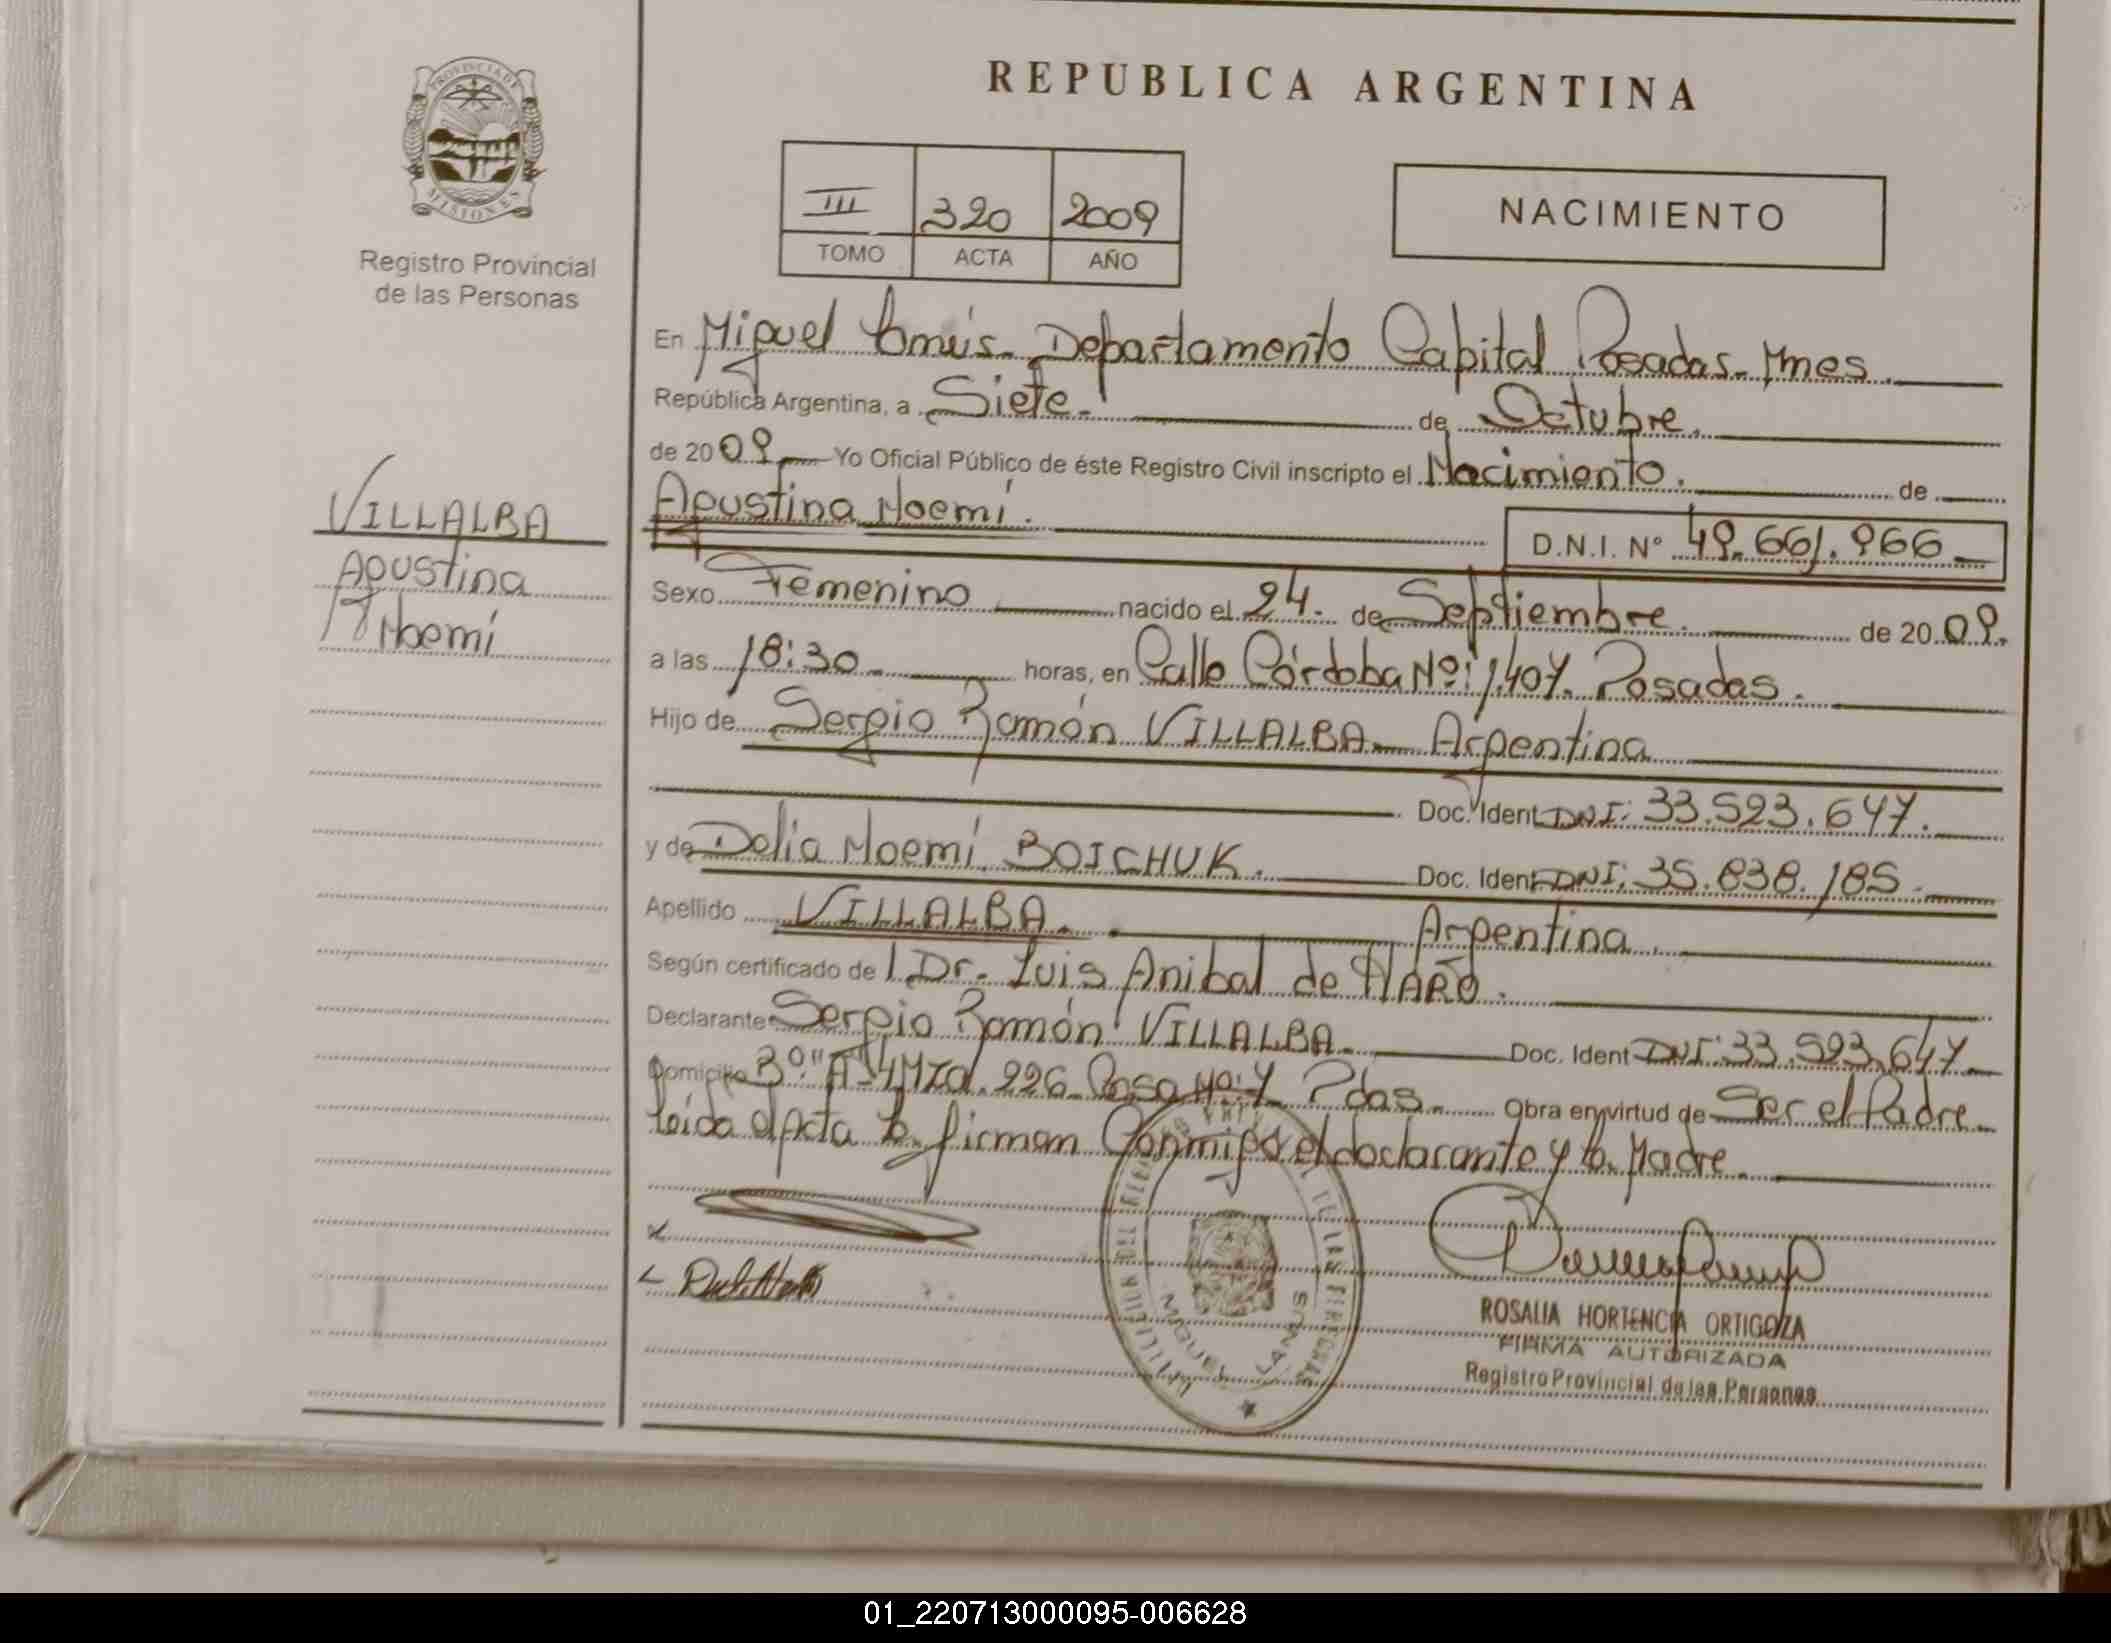 REPUBLICA ARGENTINA
PROVINCIA DE
MISIONES
Registro Provincial
de las Personas
III 320 2009
TOMO ACTA AÑO
NACIMIENTO
En Miguel Lanús. Departamento Capital Posadas. Mnes.
República Argentina, a Siete. de Octubre.
de 2009 Yo Oficial Público de éste Registro Civil inscripto el Nacimiento. de
Agustina Noemí. D.N.I. Nº 49.661.966
VILLALBA
Agustina
Noemí
Sexo Femenino nacido el 24. de Septiembre. de 2009.
a las 18:30 horas, en Calle Córdoba Nº: 1.407. Posadas.
Hijo de Sergio Ramón VILLALBA Argentina
Doc. Ident DNI: 33.523.647.
y de Delia Noemí BOICHUK. Doc. Ident DNI: 35.838.185.
Apellido VILLALBA. Argentina.
Según certificado de l Dr. Luis Anibal de HARO.
Declarante Sergio Ramón VILLALBA. Doc. Ident DNI: 33.523.647
Domicilio Bº "A-4 Mza. 226 Casa Nº: 7 Pdas. Obra en virtud de Ser el Padre.
Leída el Acta la firman Conmigo el declarante y la Madre.
ROSALIA HORTENCIA ORTIGOZA
FIRMA AUTORIZADA
Registro Provincial de las Personas
MIGUEL LANUS
01_220713000095-006628